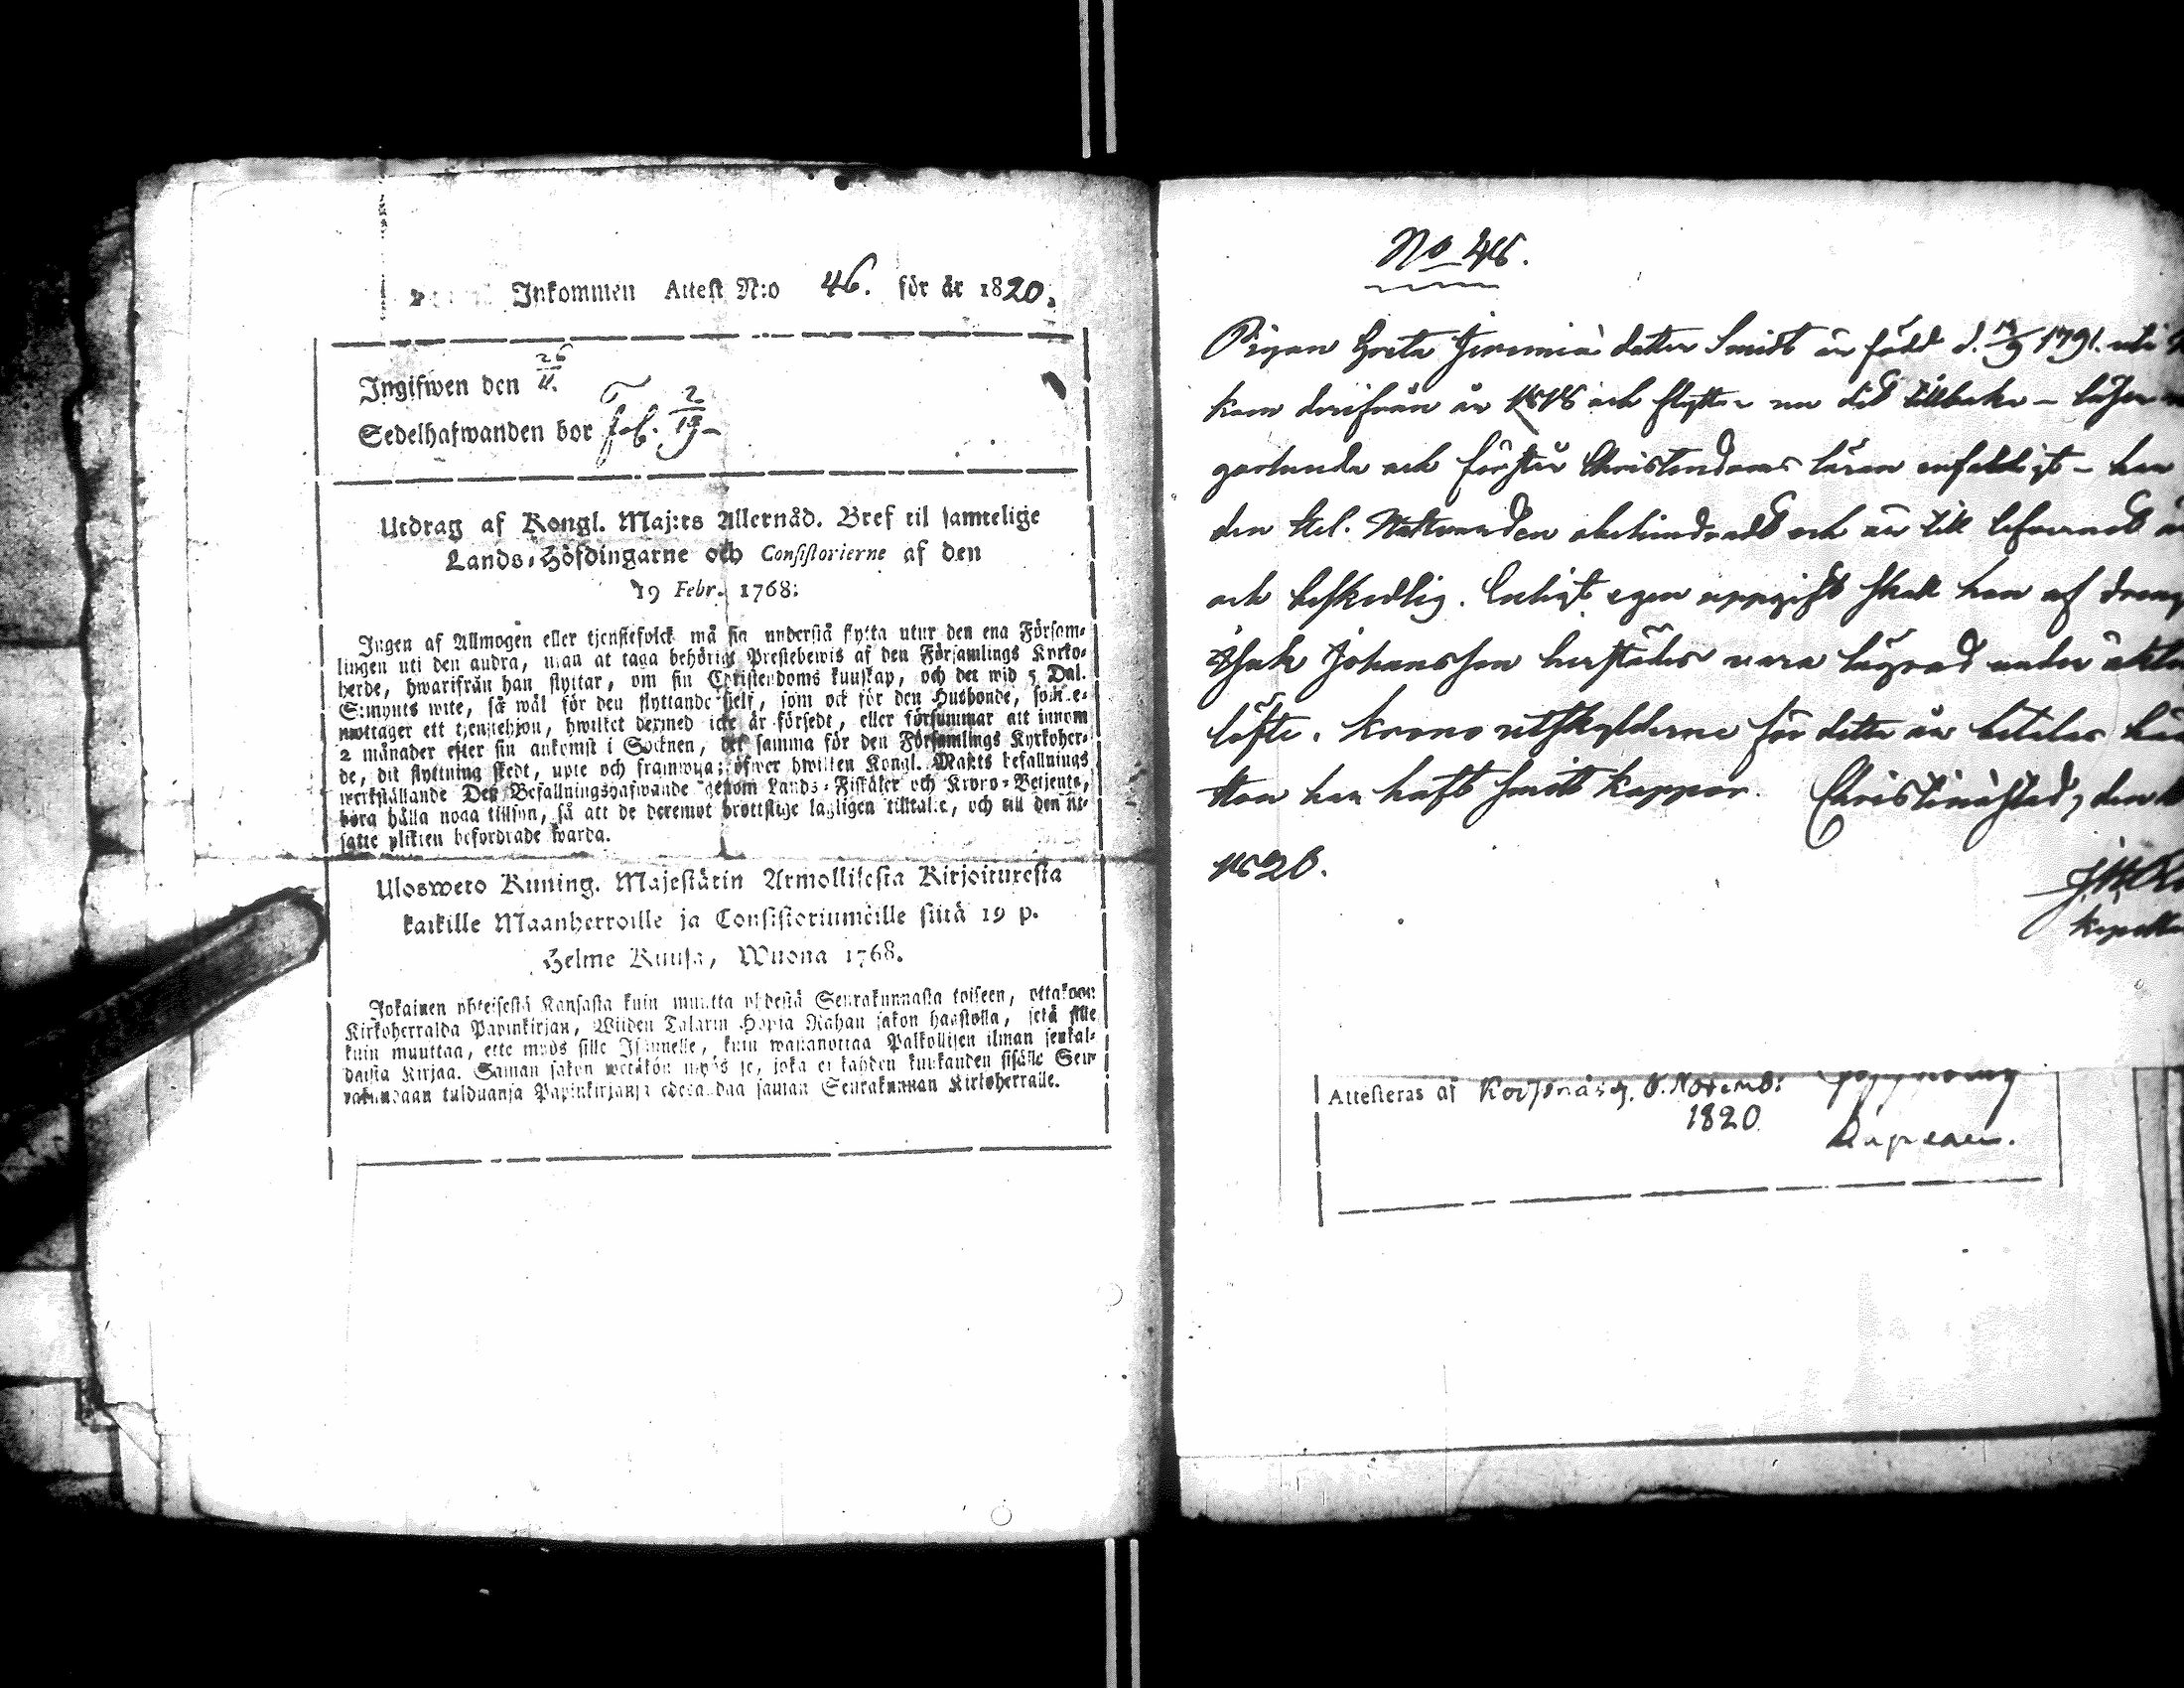 Inkommen Attest N:o 46. för år 1820.
Ingifwen den 26/11.
Sedelhafwanden bor Fol. 2/19
Utdrag af Kongl. Maj:ts Allernåd. Bref til samtelige
Lands-Höfdingarne och Consistorierne af den
19 Febr. 1768:
Ingen af Allmogen eller tjenstefolck må sig understå flytta utur den ena Försam-
lingen uti den andra, utan at taga behörigt Prestebewis af den Församlings Kyrko-
herde, hwarifrån han flyttar, om sin Christendoms kunskap, och det wid 5 Dal.
S:mynts wite, så wäl för den flyttande sielf, som ock för den Husbonde, som e-
mottager ett tjenstehjon, hwilket dermed icke är försedt, eller försummar att innom
2 månader efter sin ankomst i Socknen, det samma för den Församlings Kyrkoher-
de, dit flyttning skedt, upte och framwysa; öfwer hwilken Kongl. Maj:ts befallnings
werkställande Des Befallningshafwande genom Lands-Fiskaler och Krono-Betjente,
böra hålla noga tillsyn, så att de deremot brottslige lagligen tilltalte, och till den ut-
satte plikten befordrade warda.
Ulosweto Kuning. Majestätin Armollisesta Kirjoituresta
kaikille Maanherroille ja Consistoriumeille siitä 19 p.
Helme Kuusa, Wuona 1768.
Jokainen yhteisestä Kansasta kuin muutta yhdestä Seurakunnasta toiseen, ottakoon
Kirkoherralda Papinkirjan, Wiiden Talarin Hopia Rahan sakon haastolla, sekä sille
kuin muuttaa, ette myös sille Isännelle, kuin wastanottaa Palkollisen ilman senkal-
daista Kirjaa. Saman sakon wetäkön myös se, joka ei kahden kuukauden sisälle Seu-
rakundaan tulduansa Papinkirjansa edesandaa sautan Seurakunnan Kirkoherralle.
No 46.
Pigan Greta Jeremiædotter Smidt är född d. 1791. uti
kom derifrån år 1818 och flyttar nu dit tillbaka – läser
garlunda och förstår Christendoms läran enfaldigt – han
den Hel. Nattvarden obehindradt och är till lefvernet
och beskedlig. Enligt egen uppgift skall hon af dreng
Isak Johansson herstädes vara lägrad under äkta
löfte. Krono utskylderne för detta år betalar
Hon har haft Smitt koppor. Christinæstad, den
1820.
Attesteras af Novemb:
1820